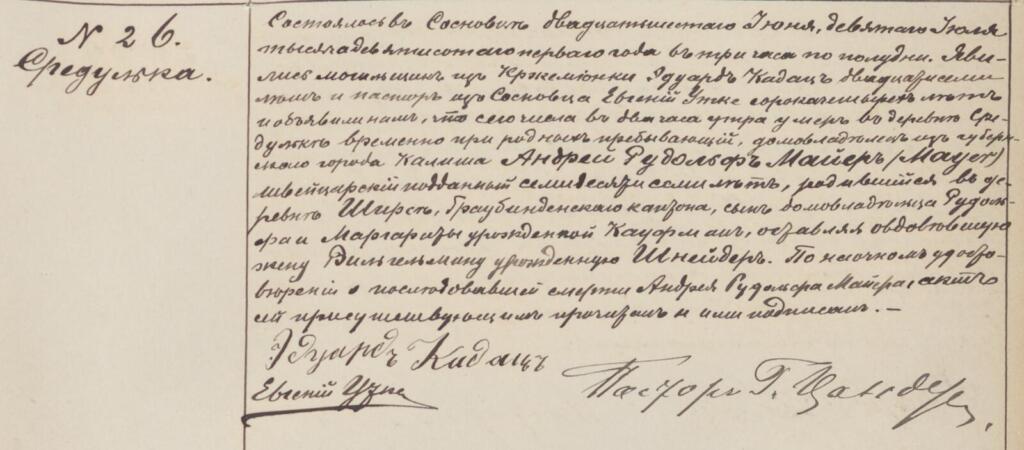 N 26.
Средулька.
Состоялось въ Сосновцѣ двадцать шестаго Іюня, девятаго Іюля
тысяча девятисотаго перваго года въ три часа по полудни. Яви-
лись могильщикъ изъ Кржеміонки Эдуардъ Кадацъ двадцати семи
лѣтъ и пасторъ изъ Сосновца Евгеній Утке сорока четырехъ лѣтъ
и объявили намъ, что сего числа въ два часа утра умеръ въ деревнѣ Сре-
дулькѣ временно при родныхъ пребывающій, домовладѣлецъ изъ губерн-
скаго города Калиша Андрей Рудольфъ Майеръ (Mayer)
швейцарскій подданный семидесяти семи лѣтъ, родившійся въ де-
ревнѣ Ширсъ, Граубинденскаго кантона, сынъ домовладѣльца Рудоль-
фа и Маргариты урожденной Кауфманъ, оставляя овдовѣвшую
жену Вильгельмину урожденную Шнейдеръ. По наочномъ удосто-
вѣреніи о послѣдовавшей смерти Андрея Рудольфа Майера, актъ
сей присутствующимъ прочитанъ и ими подписанъ. —
Эдуардъ Кадацъ
Евгеній Утке
Пасторъ Г. Цандеръ,